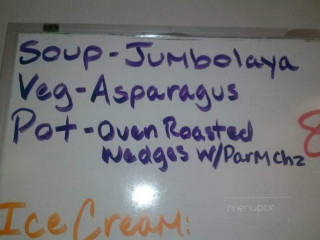 Soup-Jumbolaya
Veg-Asparagus
Pot-Oven Roasted
Wedges W/Parm Chz
8
Ice Cream:
menupix